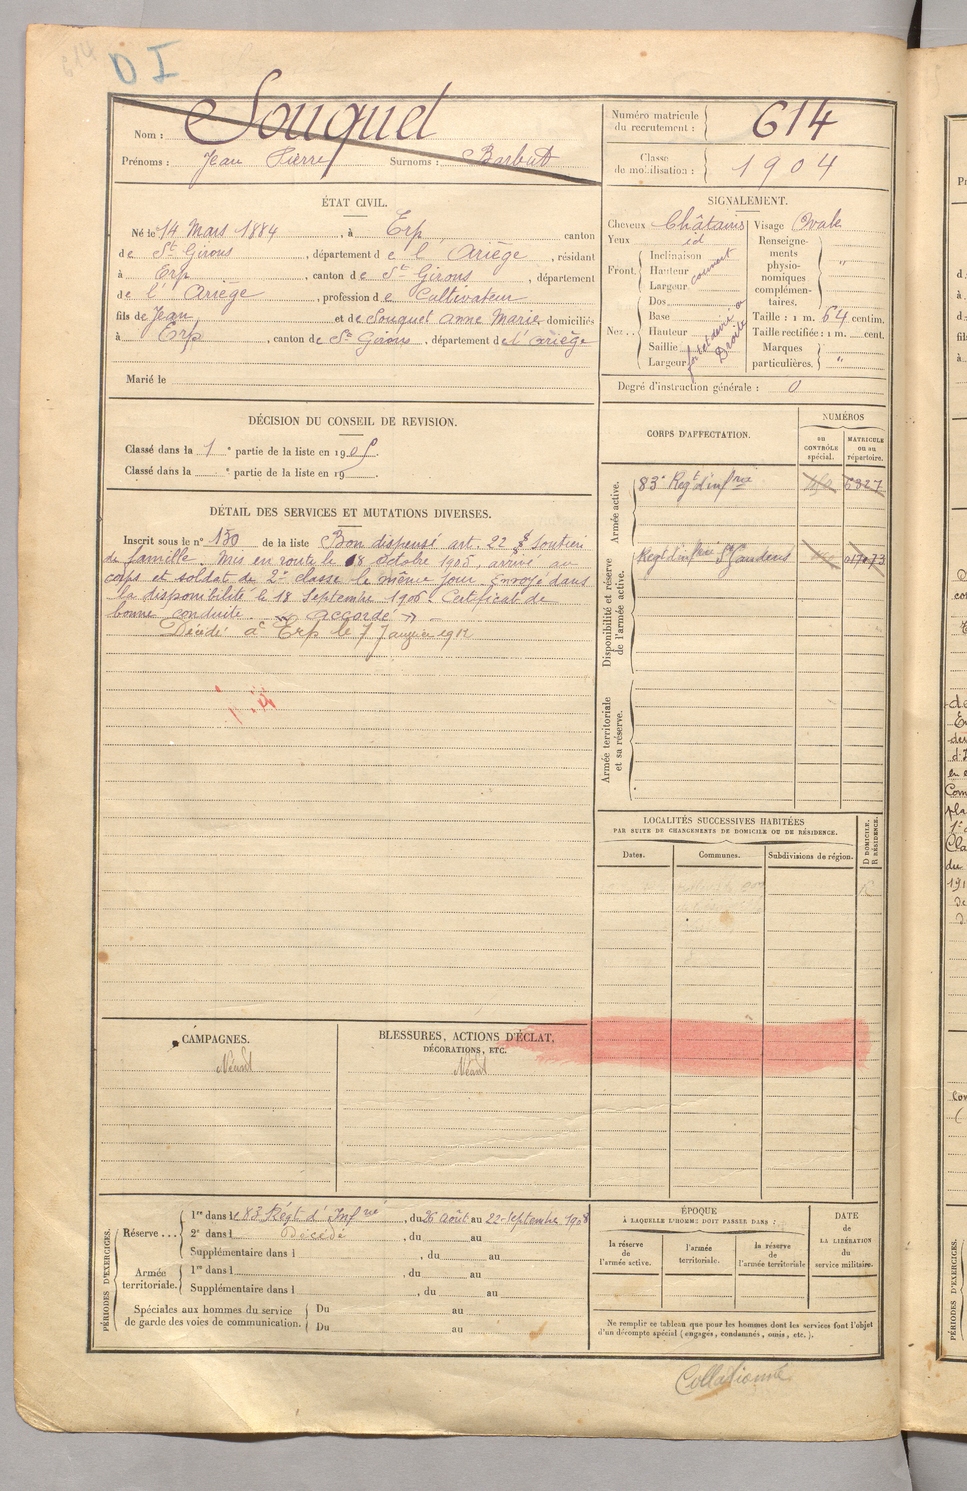 614
D I
Nom : Souquet
Prénoms : Jean Pierre Surnoms : Barbut
Numéro matricule du recrutement : 614
Classe de mobilisation : 1904
ÉTAT CIVIL.
Né le 14 Mars 1884, à Erp canton
de St Girons, département de l'Ariège, résidant
à Erp, canton de St Girons, département
de l'Ariège, profession de Cultivateur
fils de Jean et de Souquet Anne Marie domiciliés
à Erp, canton de St Girons, département de l'Ariège
Marié le
SIGNALEMENT.
Cheveux Châtains Visage Ovale
Yeux id
Front. Inclinaison
Hauteur
Largeur
Nez... Dos
Base
Hauteur
Saillie
Largeur
Droite
Renseignements physionomiques complémentaires. "
Taille : 1 m. 64 centim.
Taille rectifiée : 1 m. cent.
Marques particulières. "
Degré d'instruction générale : 0
DÉCISION DU CONSEIL DE REVISION.
Classé dans la 1e partie de la liste en 1905.
Classé dans la e partie de la liste en 19 .
DÉTAIL DES SERVICES ET MUTATIONS DIVERSES.
Inscrit sous le n° 130 de la liste Bon dispensé art. 22 Soutien
de famille. Mis en route le 8 Octobre 1905, arrivé au
corps et soldat de 2e classe le même jour. Envoyé dans
la disponibilité le 18 Septembre 1906. Certificat de
bonne conduite " accordé "
Décédé à Erp le 7 Janvier 1912
CORPS D'AFFECTATION.
NUMÉROS
au CONTRÔLE spécial.
MATRICULE ou au répertoire.
Armée active.
83e Régt d'infrie 6327
Disponibilité et réserve de l'armée active.
Regt d'infrie St Gaudens 017073
Armée territoriale et sa réserve.
LOCALITÉS SUCCESSIVES HABITÉES
PAR SUITE DE CHANGEMENTS DE DOMICILE OU DE RÉSIDENCE.
Dates. Communes. Subdivisions de région. D DOMICILE. R RÉSIDENCE.
R
CAMPAGNES.
Néant
BLESSURES, ACTIONS D'ÉCLAT,
DÉCORATIONS, ETC.
Néant
PÉRIODES D'EXERCICES.
Réserve... 1re dans le 83e Régt d'Infrie, du 26 août au 22 Septembre 1908
2e dans l Décédé, du au
Supplémentaire dans l , du au
Armée territoriale. 1re dans l , du au
Supplémentaire dans l , du au
Spéciales aux hommes du service de garde des voies de communication. Du au
Du au
ÉPOQUE
À LAQUELLE L'HOMME DOIT PASSER DANS :
la réserve de l'armée active.
l'armée territoriale.
la réserve de l'armée territoriale
DATE de LA LIBÉRATION du service militaire.
Ne remplir ce tableau que pour les hommes dont les services font l'objet
d'un décompte spécial (engagés, condamnés, omis, etc.).
Collationné